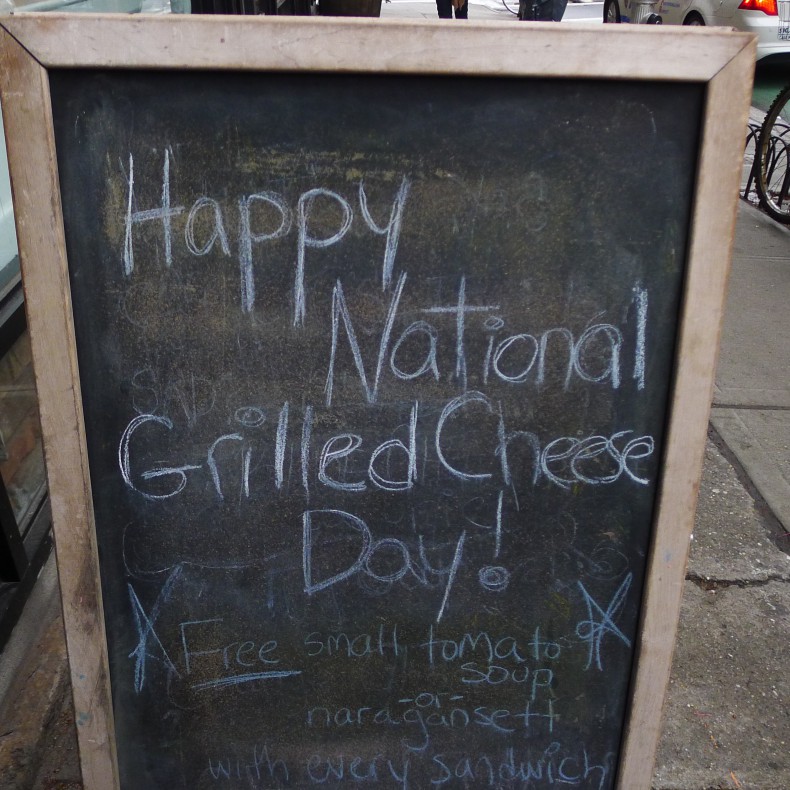 Happy
National
Grilled Cheese
Day!
Free small tomato
soup
-or-
naragansett
with every sandwich